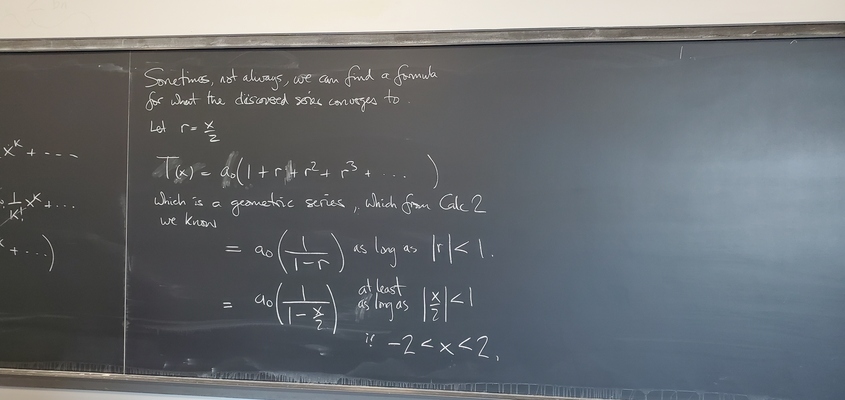 x^k + ----
1/k! x^k + ...
+ ...)
Sometimes, not always, we can find a formula
for what the discovered series converges to.
Let r = x/2
T(x) = a₀(1 + r + r² + r³ + ... )
which is a geometric series, which from Calc 2
we know
= a₀(1/(1-r)) as long as |r| < 1.
= a₀(1/(1-x/2)) at least as long as |x/2| < 1
if -2 < x < 2.